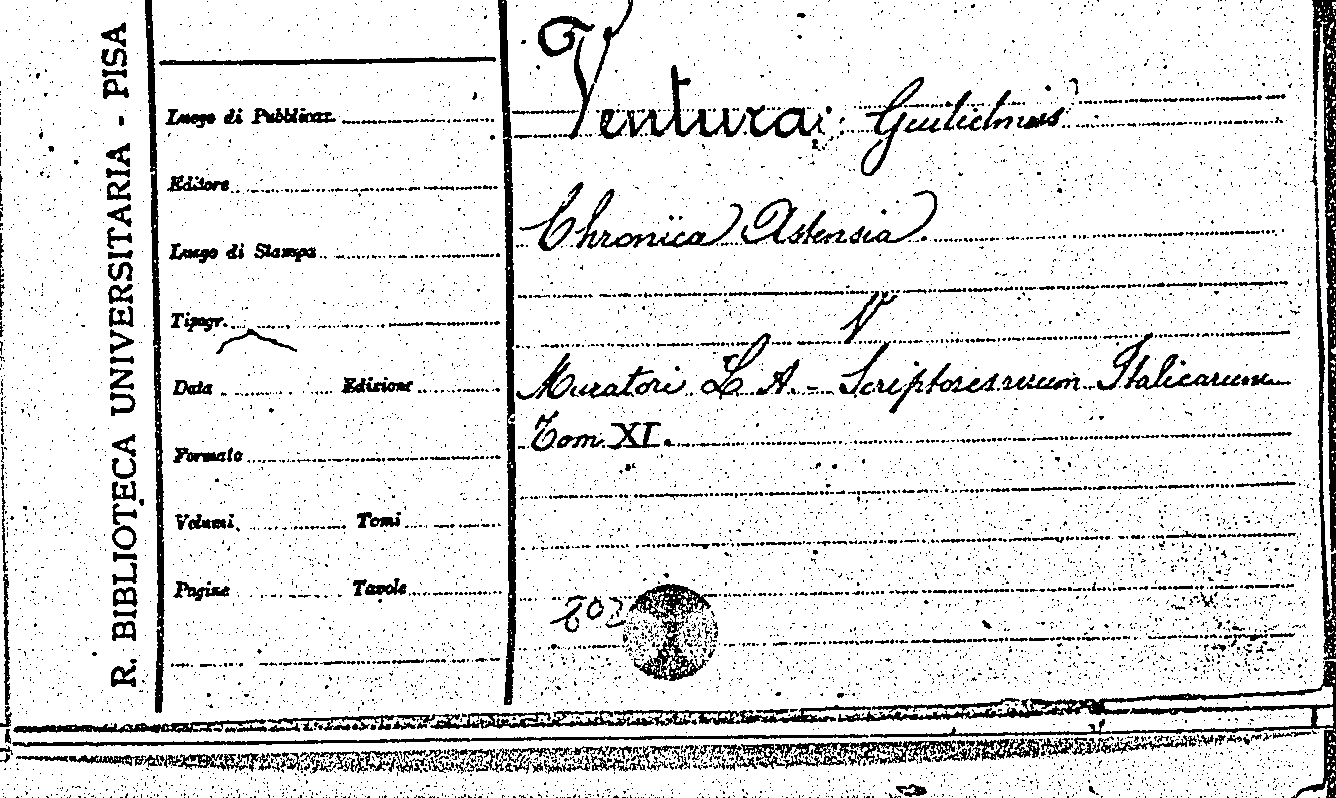 R. BIBLIOTECA UNIVERSITARIA - PISA
Luogo di Pubblicaz.
Editore
Luogo di Stampa
Tipogr.
Data Edizione
Formato
Volumi Tomi
Pagine Tavole
Ventura; Guilielmus
Chronica Astensia.
Muratori L. A. - Scriptores rerum Italicarum
Tom. XI.